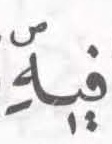 فيهِّ ص